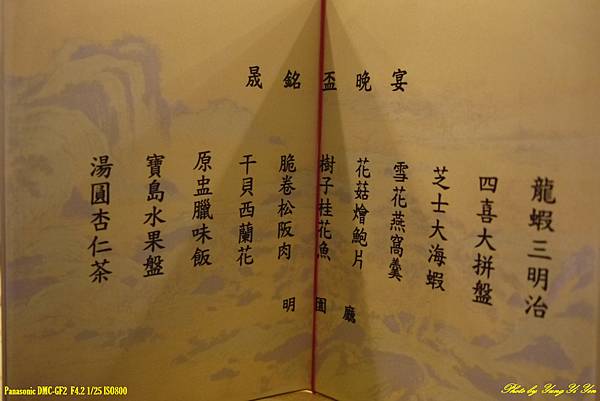 晟銘盃晚宴
龍蝦三明治
四喜大拼盤
芝士大海蝦
雪花燕窩羹
花菇燴鮑片
樹子桂花魚
脆卷松阪肉
干貝西蘭花
原盅臘味飯
寶島水果盤
湯圓杏仁茶
明園廳
Panasonic DMC-GF2 F4.2 1/25 ISO800
Photo by Yung Yi Yen